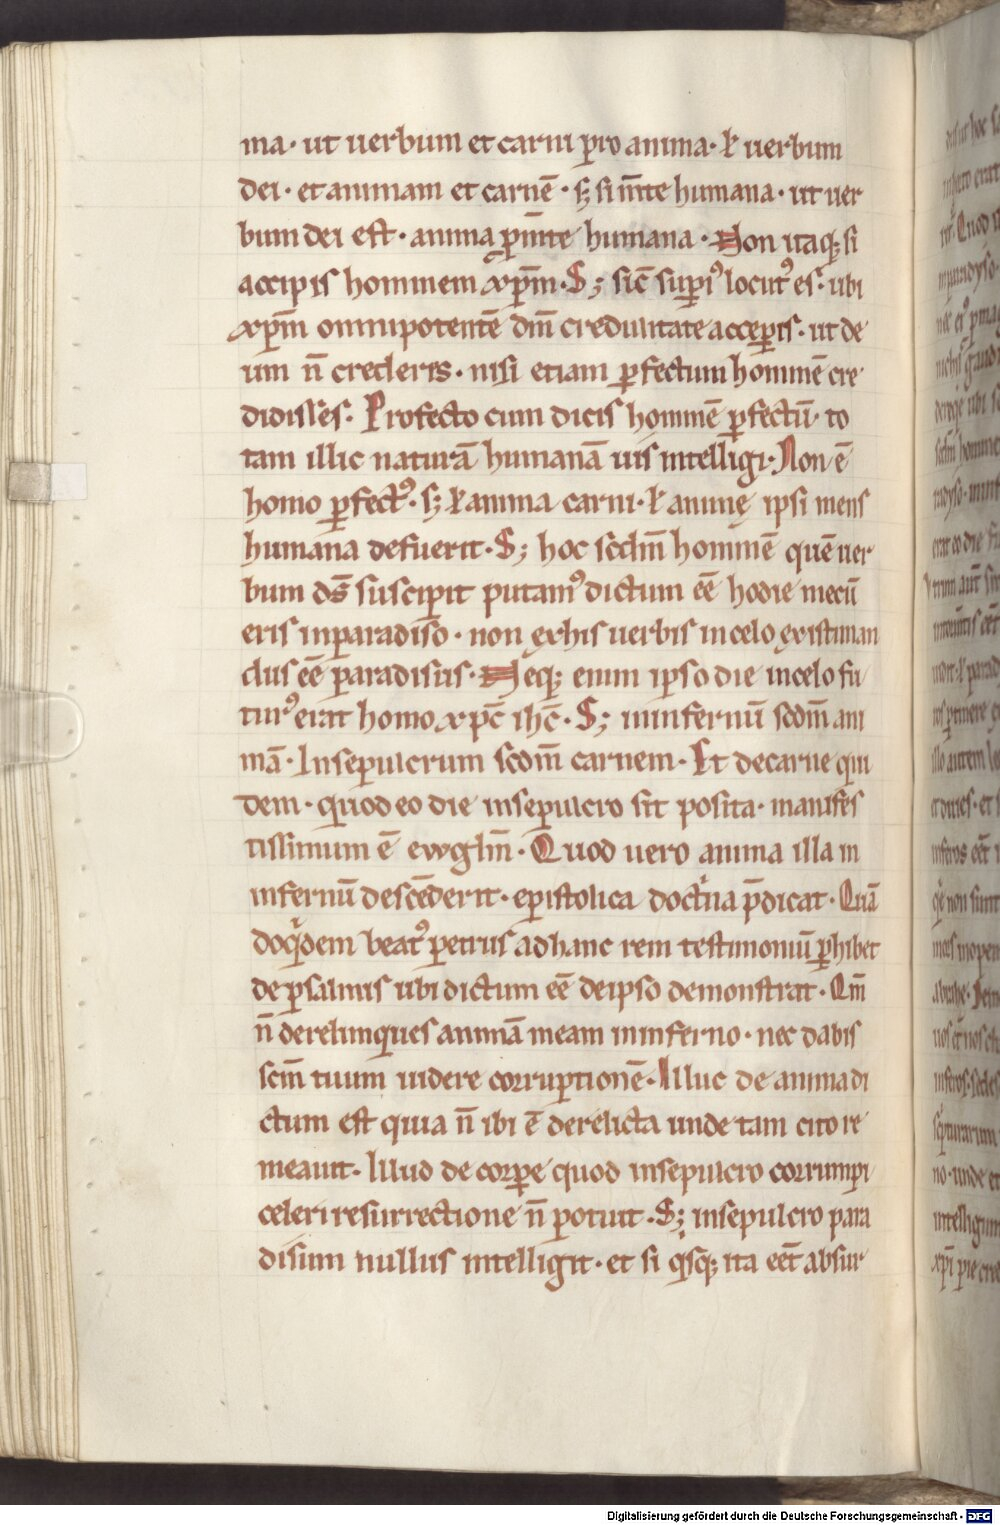 ma· ut uerbum et carni pro anima· ł uerbum
dei· et animam et carnē· sꝫ si m̄te humana· ut uer
bum dei est· anima ꝓ m̄te humana· Non itaqꝫ si
accipis hominem xp̄m· Sꝫ sic̄ suꝑiꝰ locutꝰ es· ubi
xp̄m omnipotentē dm̄ credulitate acceperis· ut de
um n̄ crederes· nisi etiam ꝑfectum hominē cre
didisses· Profecto cum dicis hominē ꝑfectū· to
tam illic naturā humanā uis intelligi· Non ē
homo ꝑfectꝰ· sꝫ ł anima carni· ł animę ipsi mens
humana defuerit· Sꝫ hoc scdm̄ hominē quē uer
bum ds̄ suscipit putamꝰ dictum eē hodie mecū
eris inparadiso· non ęx his uerbis in celo ęxistiman
dus eē paradisus· Neqꝫ enim ipso die incelo fu
turꝰ erat homo xpc̄ ihc̄· Sꝫ in infernū scdm̄ ani
mā· Insepulcrum scdm̄ carnem· Et decarne qui
dem· quod eo die insepulcro sit posita· manifes
tissimum ē ewglm̄· Quod uero anima illa in
infernū descēderit· epistolica doctͥna p̄dicat· Quā
doqͥdem beatꝰ petrus ad hanc rem testimoniū ꝑhibet
de psalmis ubi dictum eē deipso demonstrat· Qm̄
n̄ derelinques animā meam in inferno· nec dabis
scm̄ tuum uidere corruptionē· Illuc de anima di
ctum est quia n̄ ibi ē derelicta unde tam cito re
meauit· Illud de corꝑe quod insepulcro corrumpi
celeri resurrectione n̄ potuit· Sꝫ insepulcro para
disum nullus intelligit· et si qͥsqꝫ ita eēt absur
Digitalisierung gefördert durch die Deutsche Forschungsgemeinschaft - DFG